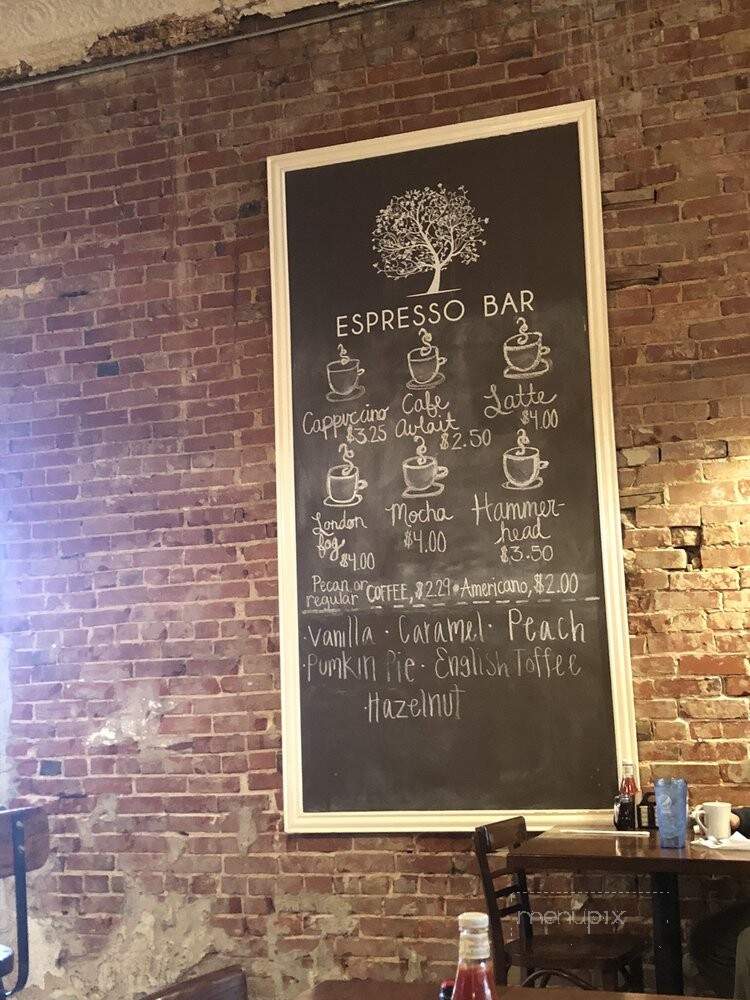 ESPRESSO BAR
Cappuccino $3.25
Cafe Aulait $2.50
Latte $4.00
London fog $4.00
Mocha $4.00
Hammer-
head
$3.50
Pecan or regular COFFEE, $2.29 • Americano, $2.00
·Vanilla · Caramel · Peach
·Pumkin Pie · English Toffee
·Hazelnut
menupix